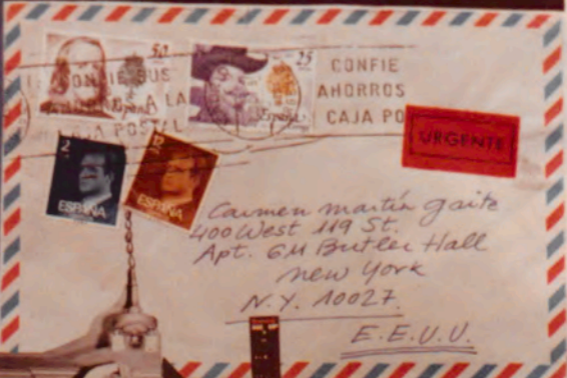 50
España
25
España
CONFIE SUS
LA
CAJA POSTAL
CONFIE
AHORROS
CAJA PO
URGENTE
2
ESPAÑA
12
ESPAÑA
Carmen martín gaite
400 West 119 St.
Apt. 6M Butler Hall
New York
N.Y. 10027.
E.E.U.U.